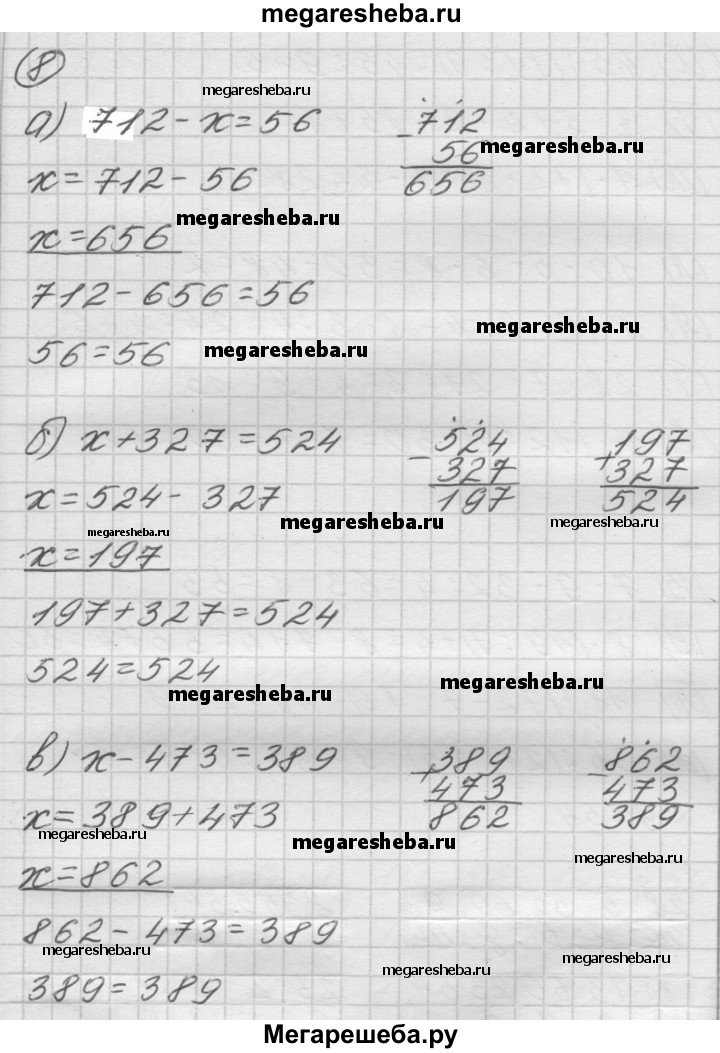 megaresheba.ru
8
megaresheba.ru
а) 712 - x = 56
712
- 56
656
megaresheba.ru
x = 712 - 56
megaresheba.ru
x = 656
712 - 656 = 56
megaresheba.ru
56 = 56
megaresheba.ru
б) x + 327 = 524
524
- 327
197
197
+ 327
524
x = 524 - 327
megaresheba.ru
megaresheba.ru
megaresheba.ru
x = 197
197 + 327 = 524
524 = 524
megaresheba.ru
megaresheba.ru
в) x - 473 = 389
389
+ 473
862
862
- 473
389
x = 389 + 473
megaresheba.ru
megaresheba.ru
megaresheba.ru
x = 862
862 - 473 = 389
megaresheba.ru
megaresheba.ru
megaresheba.ru
389 = 389
Мегарешеба.ру